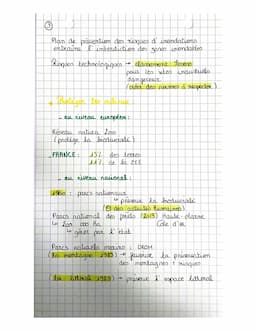 3
Plan de prévention des risques d'inondations
entraîne l'interdiction des zones inondables
Risques technologiques → classement Seveso
pour les sites industriels
dangereux
(avec des normes à respecter)
→ Protéger les milieux
- au niveau européen :
Réseau natura 2000
(protège la biodiversité)
FRANCE : 15% des terres
11% de la ZEE
- au niveau national :
1960 : parcs nationaux
↳ préserver la biodiversité
(et des activités humaines)
Parcs national des forêts (2019) Haute-Marne
↳ 200 000 ha Côte d'or
↳ gérer par l'état
Parcs naturels marins : DROM
loi montagne 1985 → favorise la préservation
des montagnes / risques
loi littoral 1986 → préserver l'espace littoral